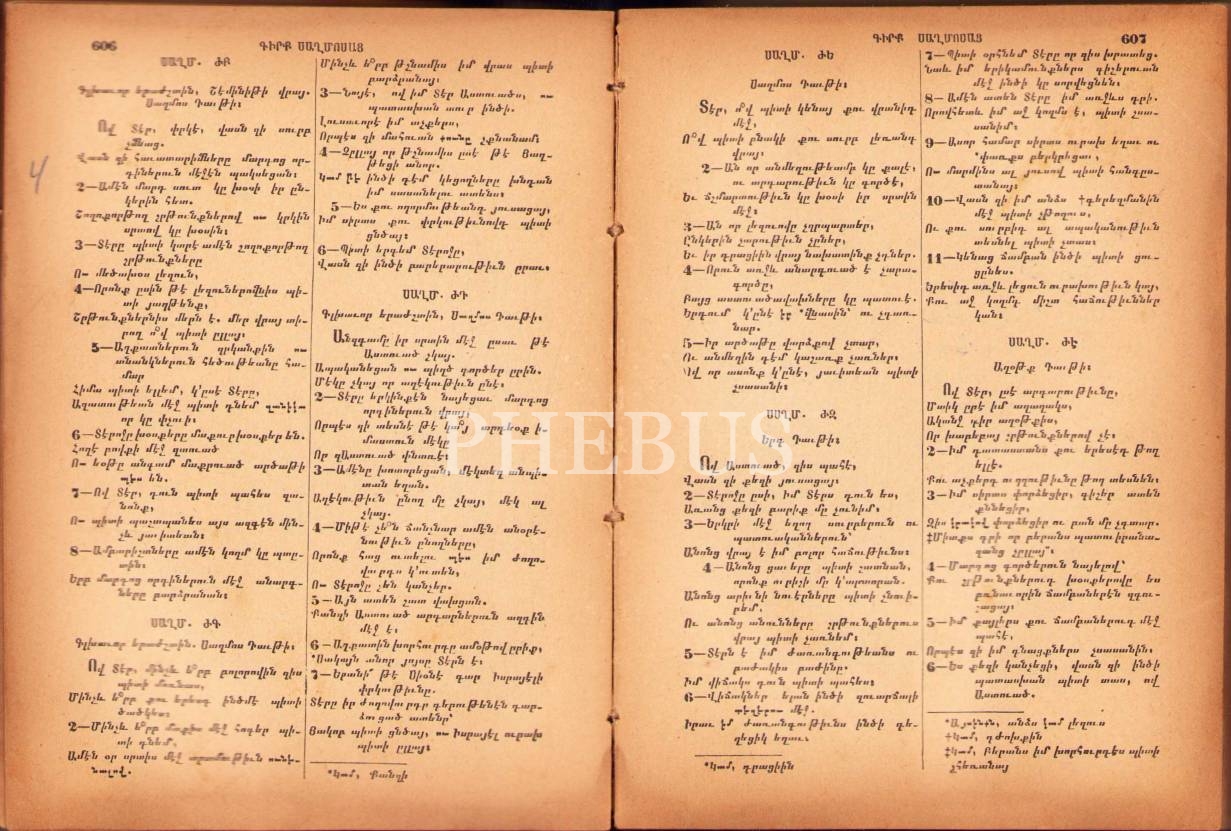 606
ԳԻՐՔ ՍԱՂՄՈՍԱՑ
ՍԱՂՄ. ԺԲ
Գլխաւոր երաժշտին, Շէմինիթի վրայ.
Սաղմոս Դաւթի։
Ով Տէր, փրկէ, վասն զի սուրբ
չմնաց.
Վասն զի հաւատարիմները մարդոց որ-
դիներուն մէջէն պակսեցան։
2—Ամէն մարդ սուտ կը խօսի իր ըն-
կերին հետ.
Շողոքորթող շրթունքներով ու կրկին
սրտով կը խօսին։
3—Տէրը պիտի կտրէ ամէն շողոքորթող
շրթունքները
Ու մեծախօս լեզուն,
4—Որոնք ըսին թէ լեզուներովնիս պի-
տի յաղթենք,
Շրթունքներնիս մերն է. մեր վրայ տի-
րող ո՞վ պիտի ըլլայ։
5—Աղքատներուն զրկանքին ու
տնանկներուն հեծութեանը հա-
մար
Հիմա պիտի ելլեմ, կ՚ըսէ Տէրը,
Ազատութեան մէջ պիտի դնեմ
որ կը փչուի։
6—Տէրոջը խօսքերը մաքուր խօսքեր են.
Հողէ բովքի մէջ զտուած
Ու եօթը անգամ մաքրուած արծաթի
պէս են.
7—Ով Տէր, դուն պիտի պահես զա-
նոնք,
Ու պիտի պաշտպանես այս ազգէն մին-
չև յաւիտեան։
8—Ամբարիշտները ամէն կողմ կը պըտ-
տին։
Երբ մարդոց որդիներուն մէջ անարգ-
ները բարձրանան։
ՍԱՂՄ. ԺԳ
Գլխաւոր երաժշտին. Սաղմոս Դաւթի։
Ով Տէր, մինչև ե՞րբ բոլորովին զիս
պիտի մոռնաս,
Մինչև ե՞րբ քու երեսդ ինծմէ պիտի
ծածկես։
2—Մինչև ե՞րբ մտքիս մէջ հոգեր պի-
տի դնեմ,
Ամէն օր սրտիս մէջ տրտմութիւն ունե-
նալով.
Մինչև ե՞րբ թշնամիս իմ վրաս պիտի
բարձրանայ։
3—Նայէ, ով իմ Տէր Աստուածս, ու
պատասխան տուր ինծի.
Լուսաւորէ իմ աչքերս,
Որպէս զի մահուան քունը չքնանամ։
4—Չըլլայ որ թշնամիս ըսէ թէ Յաղ-
թեցի անոր.
Կամ թէ ինծի դէմ կեցողները խնդան
իմ սասանելու ատենս։
5—Ես քու ողորմութեանդ յուսացայ,
Իմ սիրտս քու փրկութիւնովդ պիտի
ցնծայ։
6—Պիտի երգեմ Տէրոջը,
Վասն զի ինծի բարերարութիւն ըրաւ։
ՍԱՂՄ. ԺԴ
Գլխաւոր երաժշտին, Սաղմոս Դաւթի։
Անզգամը իր սրտին մէջ ըսաւ թէ
Աստուած չկայ.
Ապականեցան ու պիղծ գործեր ըրին.
Մէկը չկայ որ աղէկութիւն ընէ։
2—Տէրը երկինքէն նայեցաւ մարդոց
որդիներուն վրայ,
Որպէս զի տեսնէ թէ կա՞յ արդեօք ի-
մաստուն մէկը
Որ զԱստուած փնտռէ։
3—Ամէնը խոտորեցան, մէկտեղ անպի-
տան եղան.
Աղէկութիւն ընող մը չկայ, մէկ ալ
չկայ.
4—Միթէ չե՞ն ճանչնար ամէն անօրէ-
նութիւն ընողները,
Որոնք հաց ուտելու պէս իմ ժողո-
վուրդս կ՚ուտեն,
Ու Տէրոջը չեն կանչեր.
5—Այն ատեն շատ վախցան.
Քանզի Աստուած արդարներուն ազգին
մէջ է։
6—Աղքատին խորհուրդը ամօթով ըրիք,
*Սակայն անոր յոյսը Տէրն է։
7—Երանի՜ թէ Սիօնէ գար Իսրայէլի
փրկութիւնը.
Տէրը իր ժողովուրդը գերութենէն դար-
ձուցած ատենը՝
Յակոբ պիտի ցնծայ, ու Իսրայէլ ուրախ
պիտի ըլլայ։
*Կամ, Քանզի
ԳԻՐՔ ՍԱՂՄՈՍԱՑ
607
ՍԱՂՄ. ԺԵ
Սաղմոս Դաւթի։
Տէր, ո՞վ պիտի կենայ քու վրանիդ
մէջ,
Ո՞վ պիտի բնակի քու սուրբ լեռանդ
վրայ։
2—Ան որ անմեղութեամբ կը քալէ,
ու արդարութիւն կը գործէ,
Եւ ճշմարտութիւն կը խօսի իր սրտին
մէջ։
3—Ան որ լեզուովը չզրպարտեր,
Ընկերին չարութիւն չըներ,
Եւ իր դրացիին վրայ նախատինք չդներ.
4—Որուն առջև անարգուած է չարա-
գործը,
Բայց աստուածավախները կը պատուէ.
Երդում կ՚ընէ իր *վնասին՝ ու չդառ-
նար.
5—Իր արծաթը վարձքով չտար,
Ու անմեղին դէմ կաշառք չառներ։
Ով որ ասոնք կ՚ընէ, յաւիտեան պիտի
չսասանի։
ՍԱՂՄ. ԺԶ
Երգ Դաւթի։
Ով Աստուած, զիս պահէ,
Վասն զի քեզի յուսացայ։
2—Տէրոջը ըսի, Իմ Տէրս դուն ես,
Առանց քեզի բարիք մը չունիմ,
3—Երկրի մէջ եղող սուրբերուն ու
պատուականներուն՝
Անոնց վրայ է իմ բոլոր հաճութիւնս։
4—Անոնց ցաւերը պիտի շատնան,
որոնք ուրիշի մը կ՚արտորան.
Անոնց արիւնի նուէրները պիտի չնուի-
րեմ.
Ու անոնց անունները շրթունքներուս
վրայ պիտի չառնեմ։
5—Տէրն է իմ ժառանգութեանս ու
բաժակիս բաժինը.
Իմ վիճակս դուն պիտի պահես։
6—Վիճակներ ելան ինծի զուարճալի
տեղերու մէջ.
Իրաւ իմ ժառանգութիւնս ինծի գե-
ղեցիկ եղաւ.
*Կամ, դրացիին
7—Պիտի օրհնեմ Տէրը որ զիս խրատեց.
Նաև իմ երիկամունքներս գիշերուան
մէջ ինծի կը սորվեցնեն։
8—Ամէն ատեն Տէրը իմ առջևս դրի.
Որովհետև իմ աջ կողմս է, պիտի չսա-
սանիմ։
9—Ասոր համար սիրտս ուրախ եղաւ ու
*փառքս բերկրեցաւ,
Ու մարմինս ալ յուսով պիտի հանգըս-
տանայ։
10—Վասն զի իմ անձս †գերեզմանին
մէջ պիտի չթողուս,
Ու քու սուրբիդ ալ ապականութիւն
տեսնել պիտի չտաս։
11—Կենաց ճամբան ինծի պիտի ցու-
ցընես.
Երեսիդ առջև լեցուն ուրախութիւն կայ,
Քու աջ կողմդ միշտ հաճութիւններ
կան։
ՍԱՂՄ. ԺԷ
Աղօթք Դաւթի։
Ով Տէր, լսէ արդարութիւնը,
Մտիկ ըրէ իմ աղաղակս,
Ականջ դիր աղօթքիս,
Որ խաբեբայ շրթունքներով չէ։
2—Իմ դատաստանս քու երեսէդ թող
ելլէ.
Քու աչքերդ ուղղութիւնը թող տեսնեն,
3—Իմ սիրտս փորձեցիր, գիշեր ատեն
քննեցիր,
Զիս կրակով փորձեցիր ու բան մը չգտար.
‡Միտքս դրի որ բերանս պատուիրանա-
զանց չըլլայ՝։
4—Մարդոց գործերուն նայելով՝
Քու շրթունքներուդ խօսքերովը ես
բռնաւորին ճամբաներէն զգու-
շացայ։
5—Իմ քայլերս քու ճամբաներուդ մէջ
պահէ,
Որպէս զի իմ գնացքներս չսասանին։
6—Ես քեզի կանչեցի, վասն զի ինծի
պատասխան պիտի տաս, ով
Աստուած.
*Այսինքն, անձս կամ լեզուս
†Կամ, դժոխքին
‡Կամ, Բերանս իմ խորհուրդես պիտի
չհեռանայ
4
PHEBUS